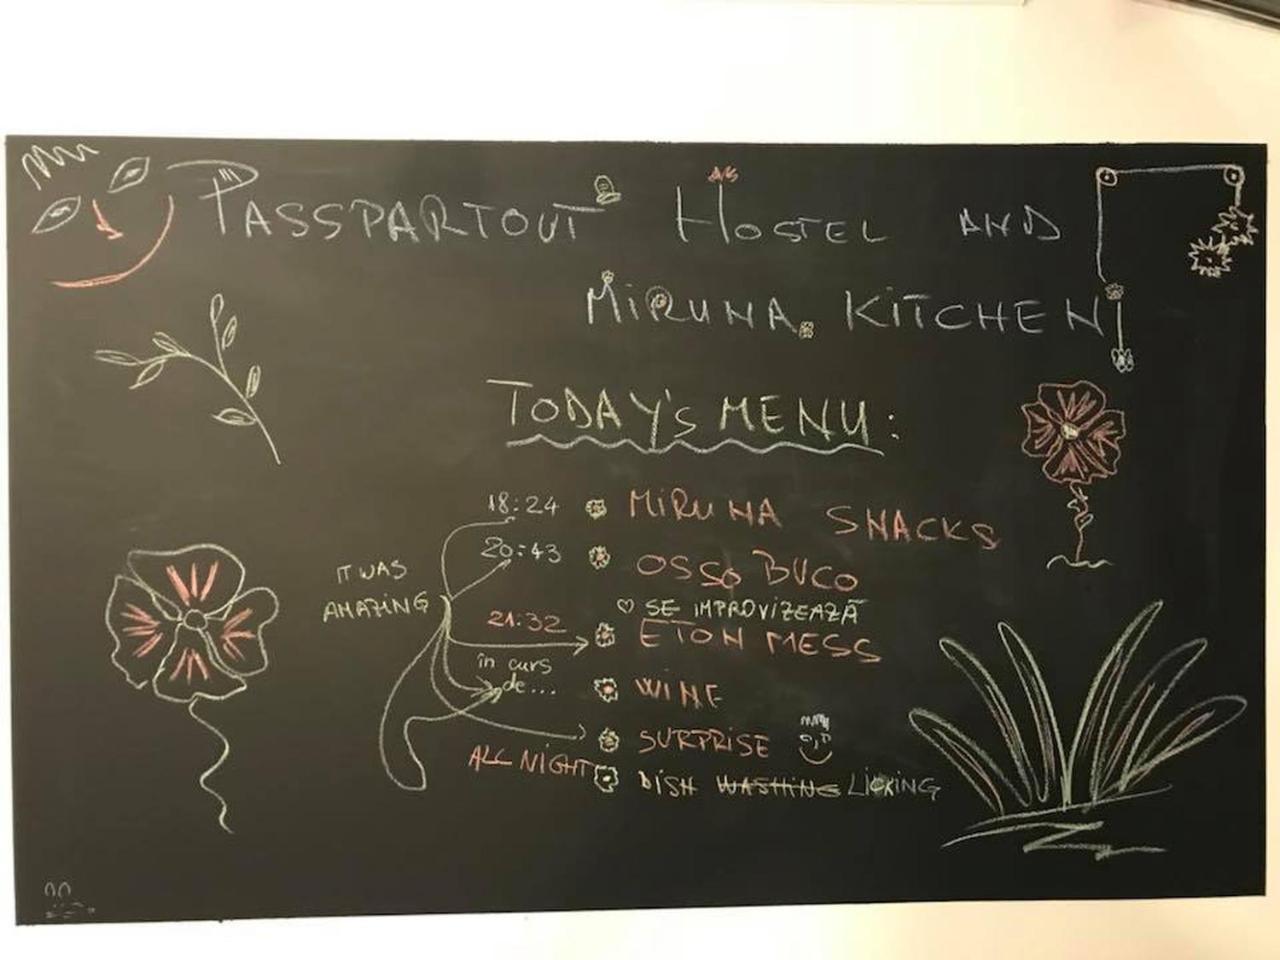 PASSPARTOUT HOSTEL AND
MiRUNA KiTCHEN
TODAY'S MENU:
18:24 MiRUNA SNACKS
20:43 OSSO BUCO
IT WAS
AMAZING
♡ SE IMPROVIZEAZĂ
21:32 ETON MESS
în curs
de... WINE
SURPRISE
ALL NIGHT DISH WASHING LICKING